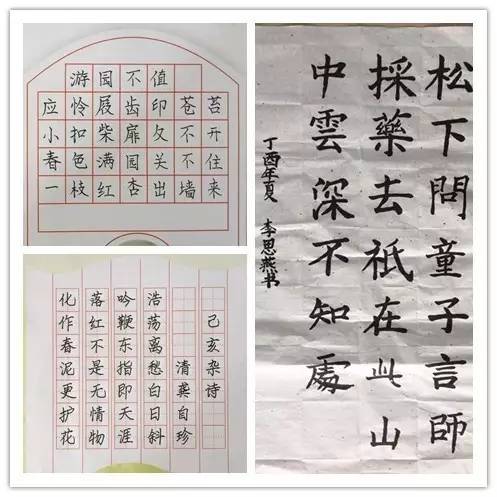 游园不值
应怜屐齿印苍苔
小扣柴扉久不开
春色满园关不住
一枝红杏出墙来
己亥杂诗
清龚自珍
浩荡离愁白日斜
吟鞭东指即天涯
落红不是无情物
化作春泥更护花
松下問童子言師
採藥去祇在此山
中雲深不知處
丁酉年夏 李思燕书